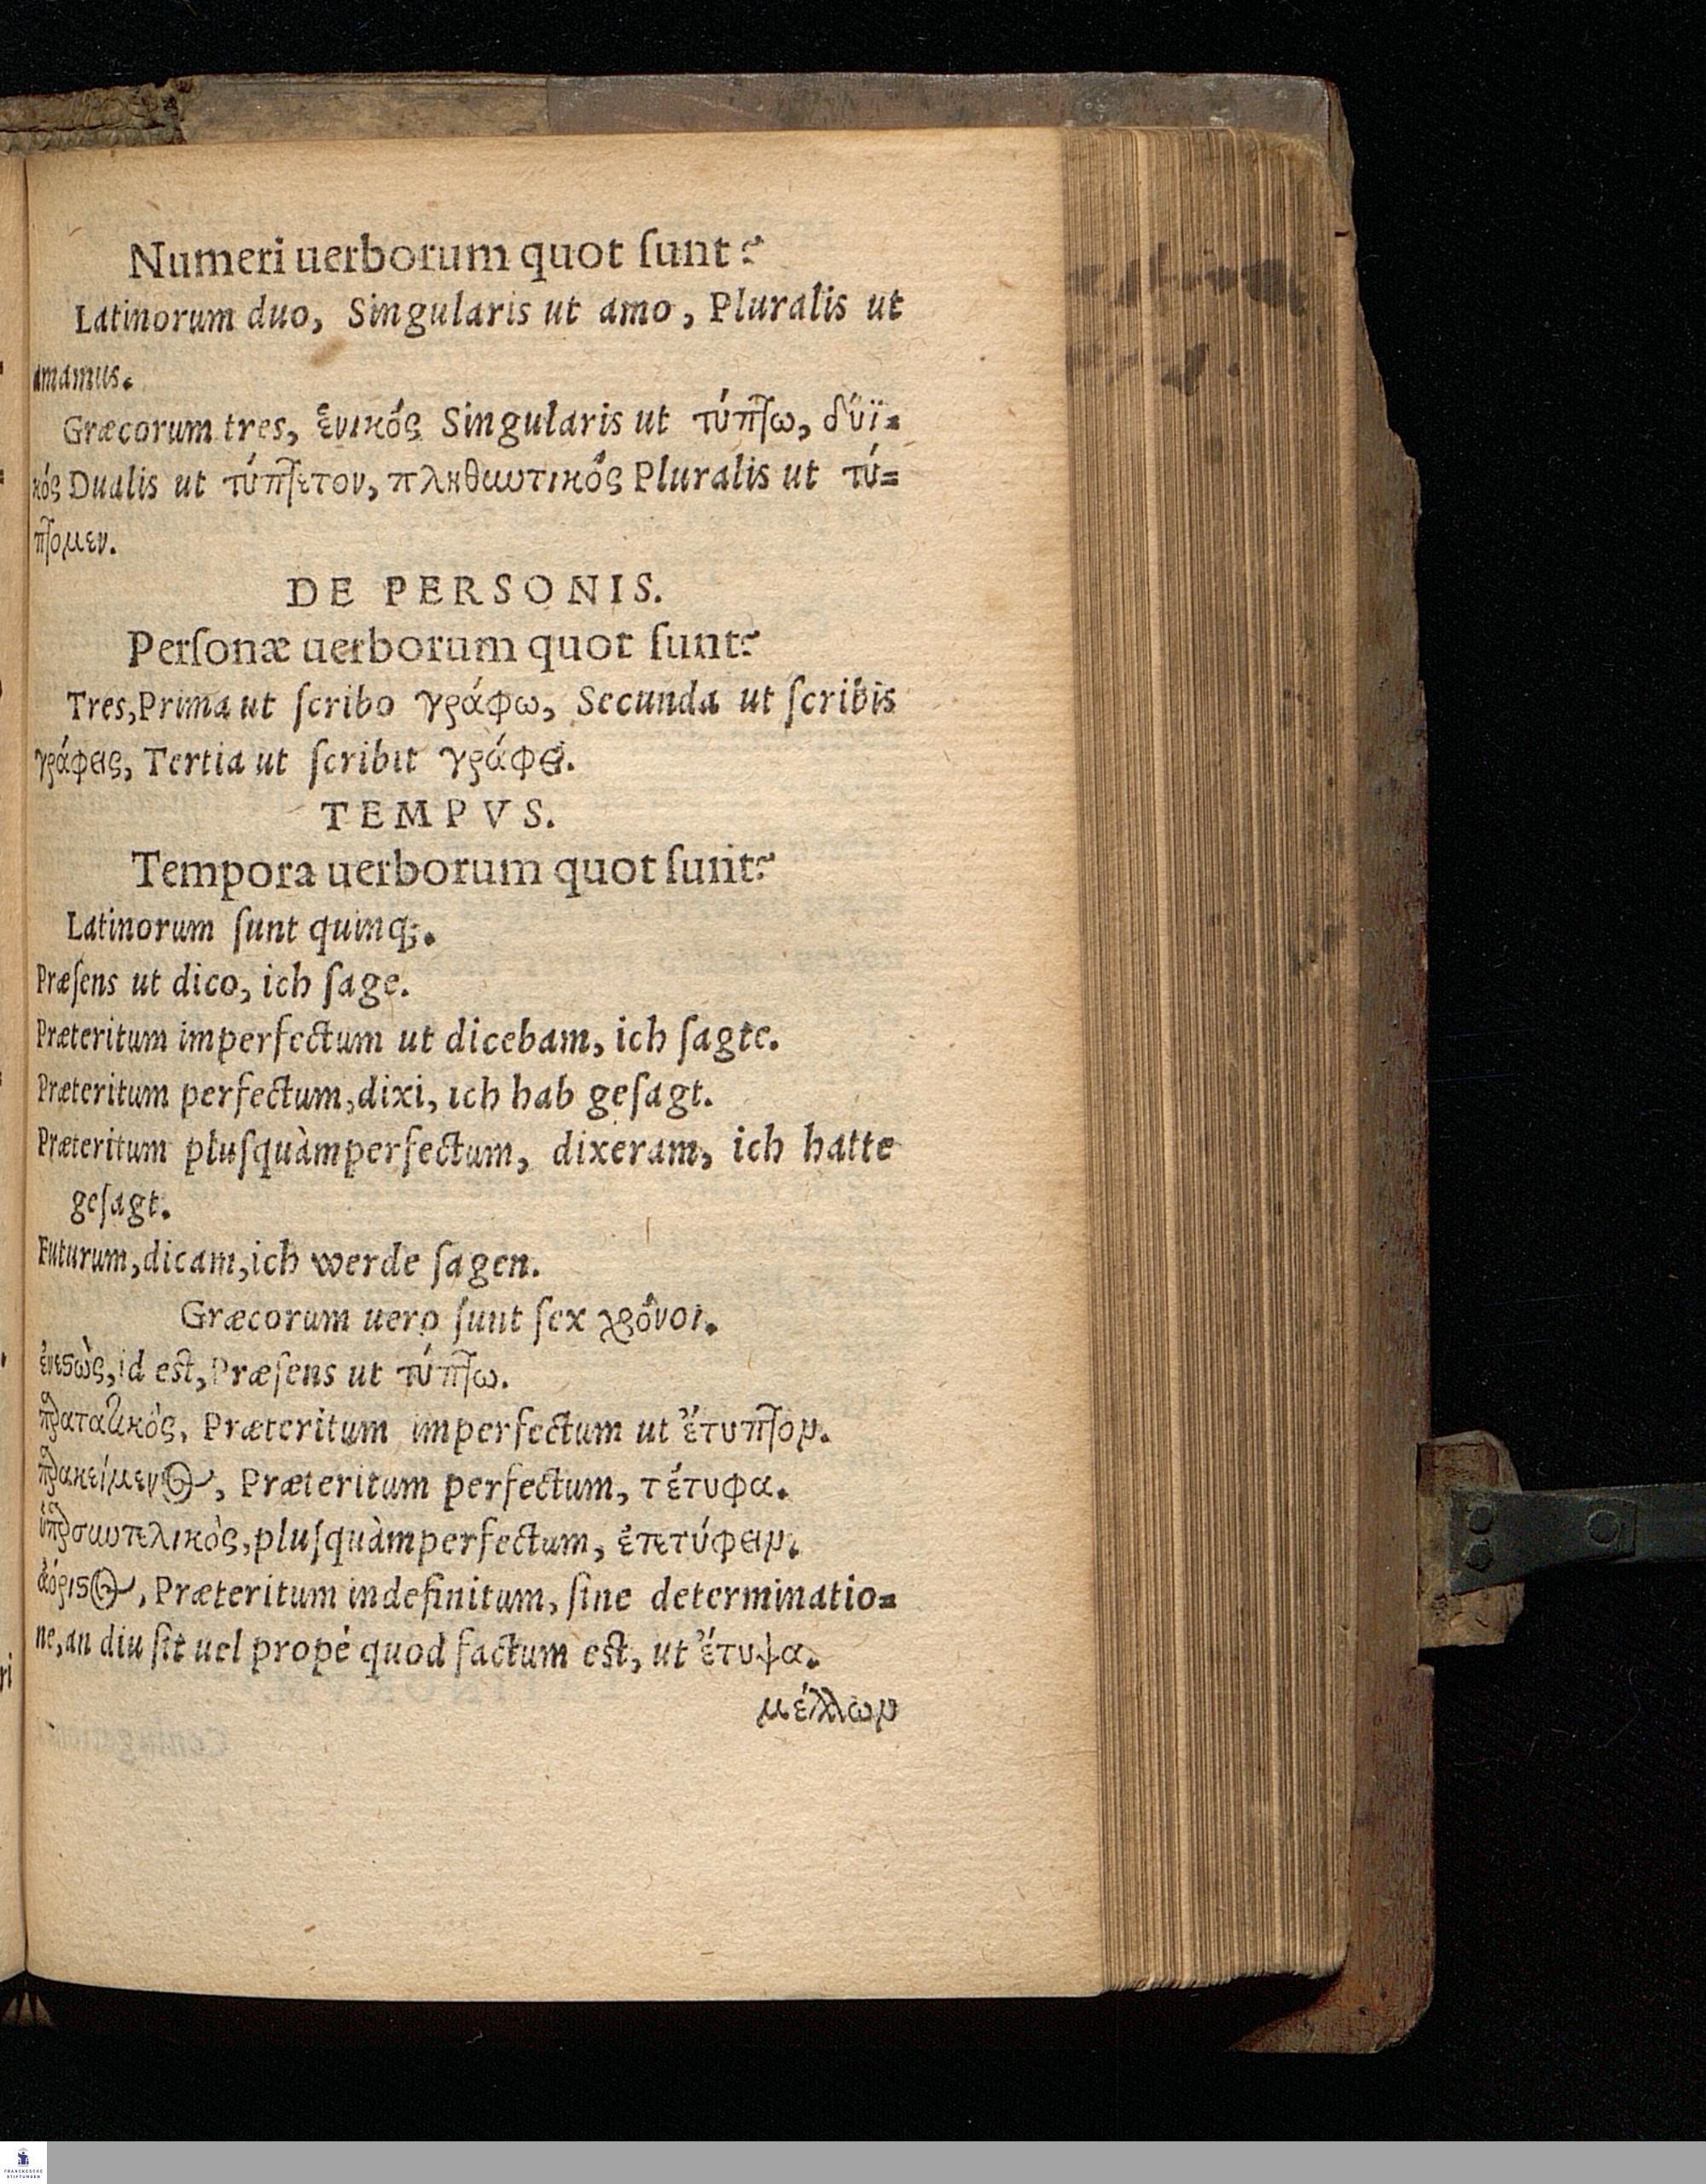 Numeri uerborum quot ſunt?
Latinorum duo, Singularis ut amo, Pluralis ut
amamus.
Græcorum tres, ἑνικός Singularis ut τύπτω, δυϊ=
κός Dualis ut τύπτετον, πληθυντικός Pluralis ut τύ=
πτομεν.
DE PERSONIS.
Perſonæ uerborum quot ſunt?
Tres, Prima ut ſcribo γράφω, Secunda ut ſcribis
γράφεις, Tertia ut ſcribit γράφει.
TEMPVS.
Tempora uerborum quot ſunt?
Latinorum ſunt quinq;.
Præſens ut dico, ich ſage.
Præteritum imperfectum ut dicebam, ich ſagte.
Præteritum perfectum, dixi, ich hab geſagt.
Præteritum pluſquàmperfectum, dixeram, ich hatte
geſagt.
Futurum, dicam, ich werde ſagen.
Græcorum uero ſunt ſex χρόνοι.
ἐνεστὼς, id est, Præſens ut τύπτω.
παρατατικὸς, Præteritum imperfectum ut ἔτυπτον.
παρακείμενος, Præteritum perfectum, τέτυφα.
ὑπερσυντελικὸς, pluſquàmperfectum, ἐτετύφειν.
ἀόριστος, Præteritum indefinitum, ſine determinatio=
ne, an diu ſit uel propé quod factum est, ut ἔτυψα.
μέλλων
FRANCKESCHE
STIFTUNGEN